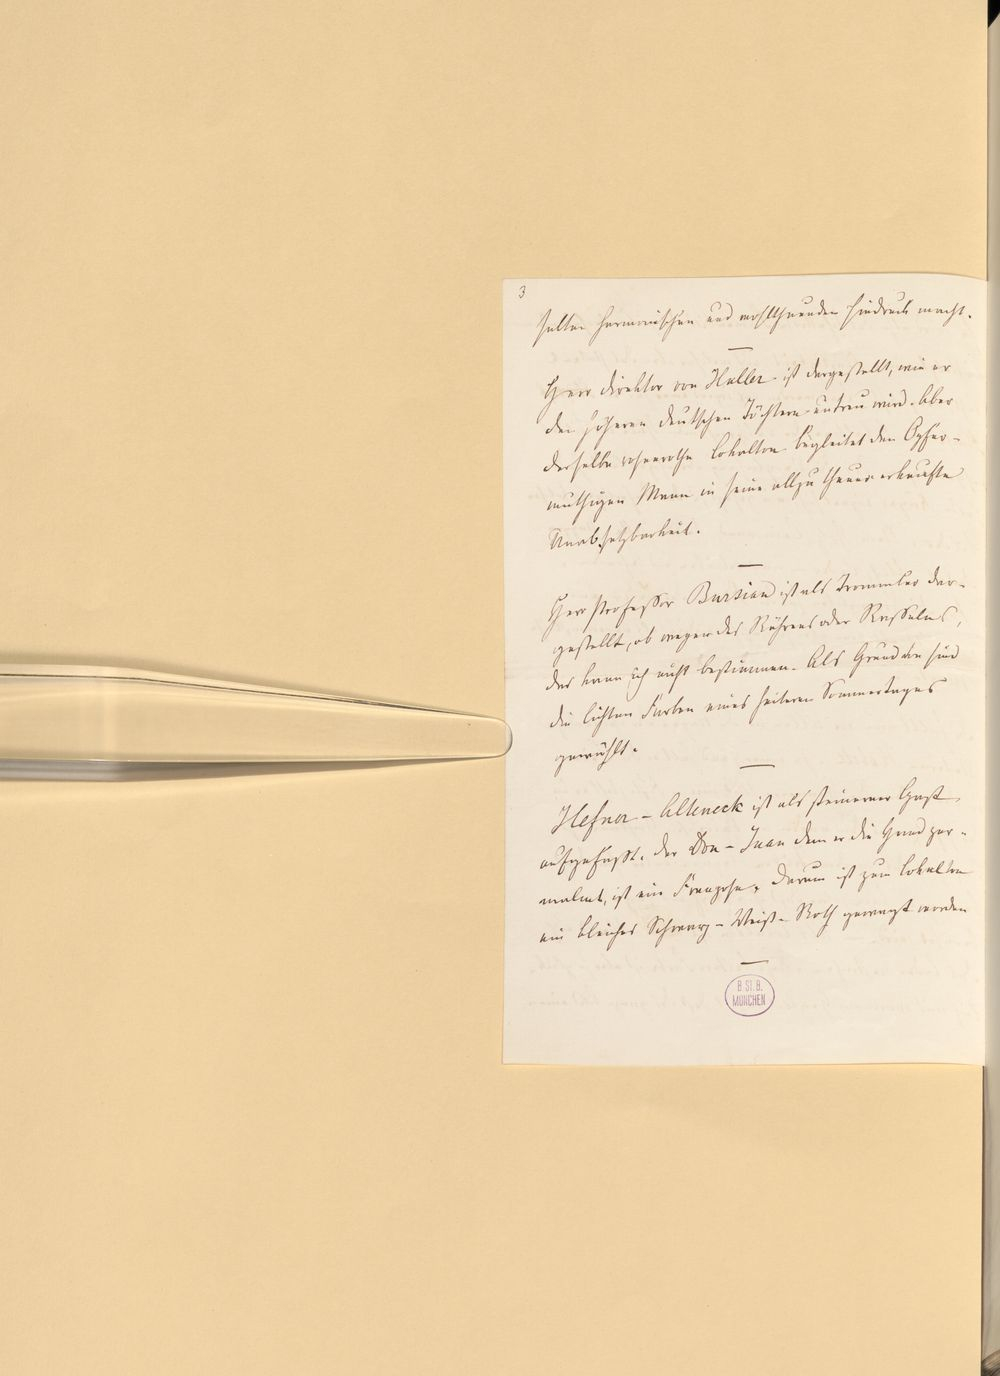 3
selten harmonischen und wohlthuenden Eindruck macht.
Herr Direktor von Haller ist dargestellt, wie er
den höheren deutschen Töchtern untreu wird. Aber
derselbe rosenrothe Lokalton begleitet den Opfer-
muthigen Mann in seine allzu theuer erkaufte
Unabsetzbarkeit.
Herr Professor Bursian ist als Trommler dar-
gestellt, ob wegen des Rührens oder Rasselns,
das kann ich nicht bestimmen. Als Grundton sind
die lichten Farben eines heiteren Sommertages
gewählt.
Hefner-Alteneck ist als steinerner Gast
aufgefaßt. Der Don-Juan dem er die Hand zer-
malmt, ist ein Franzose, darum ist zum Lokalton
ein bleiches Schwarz-Weiß-Roth gewagt worden
B. St. B.
MÜNCHEN